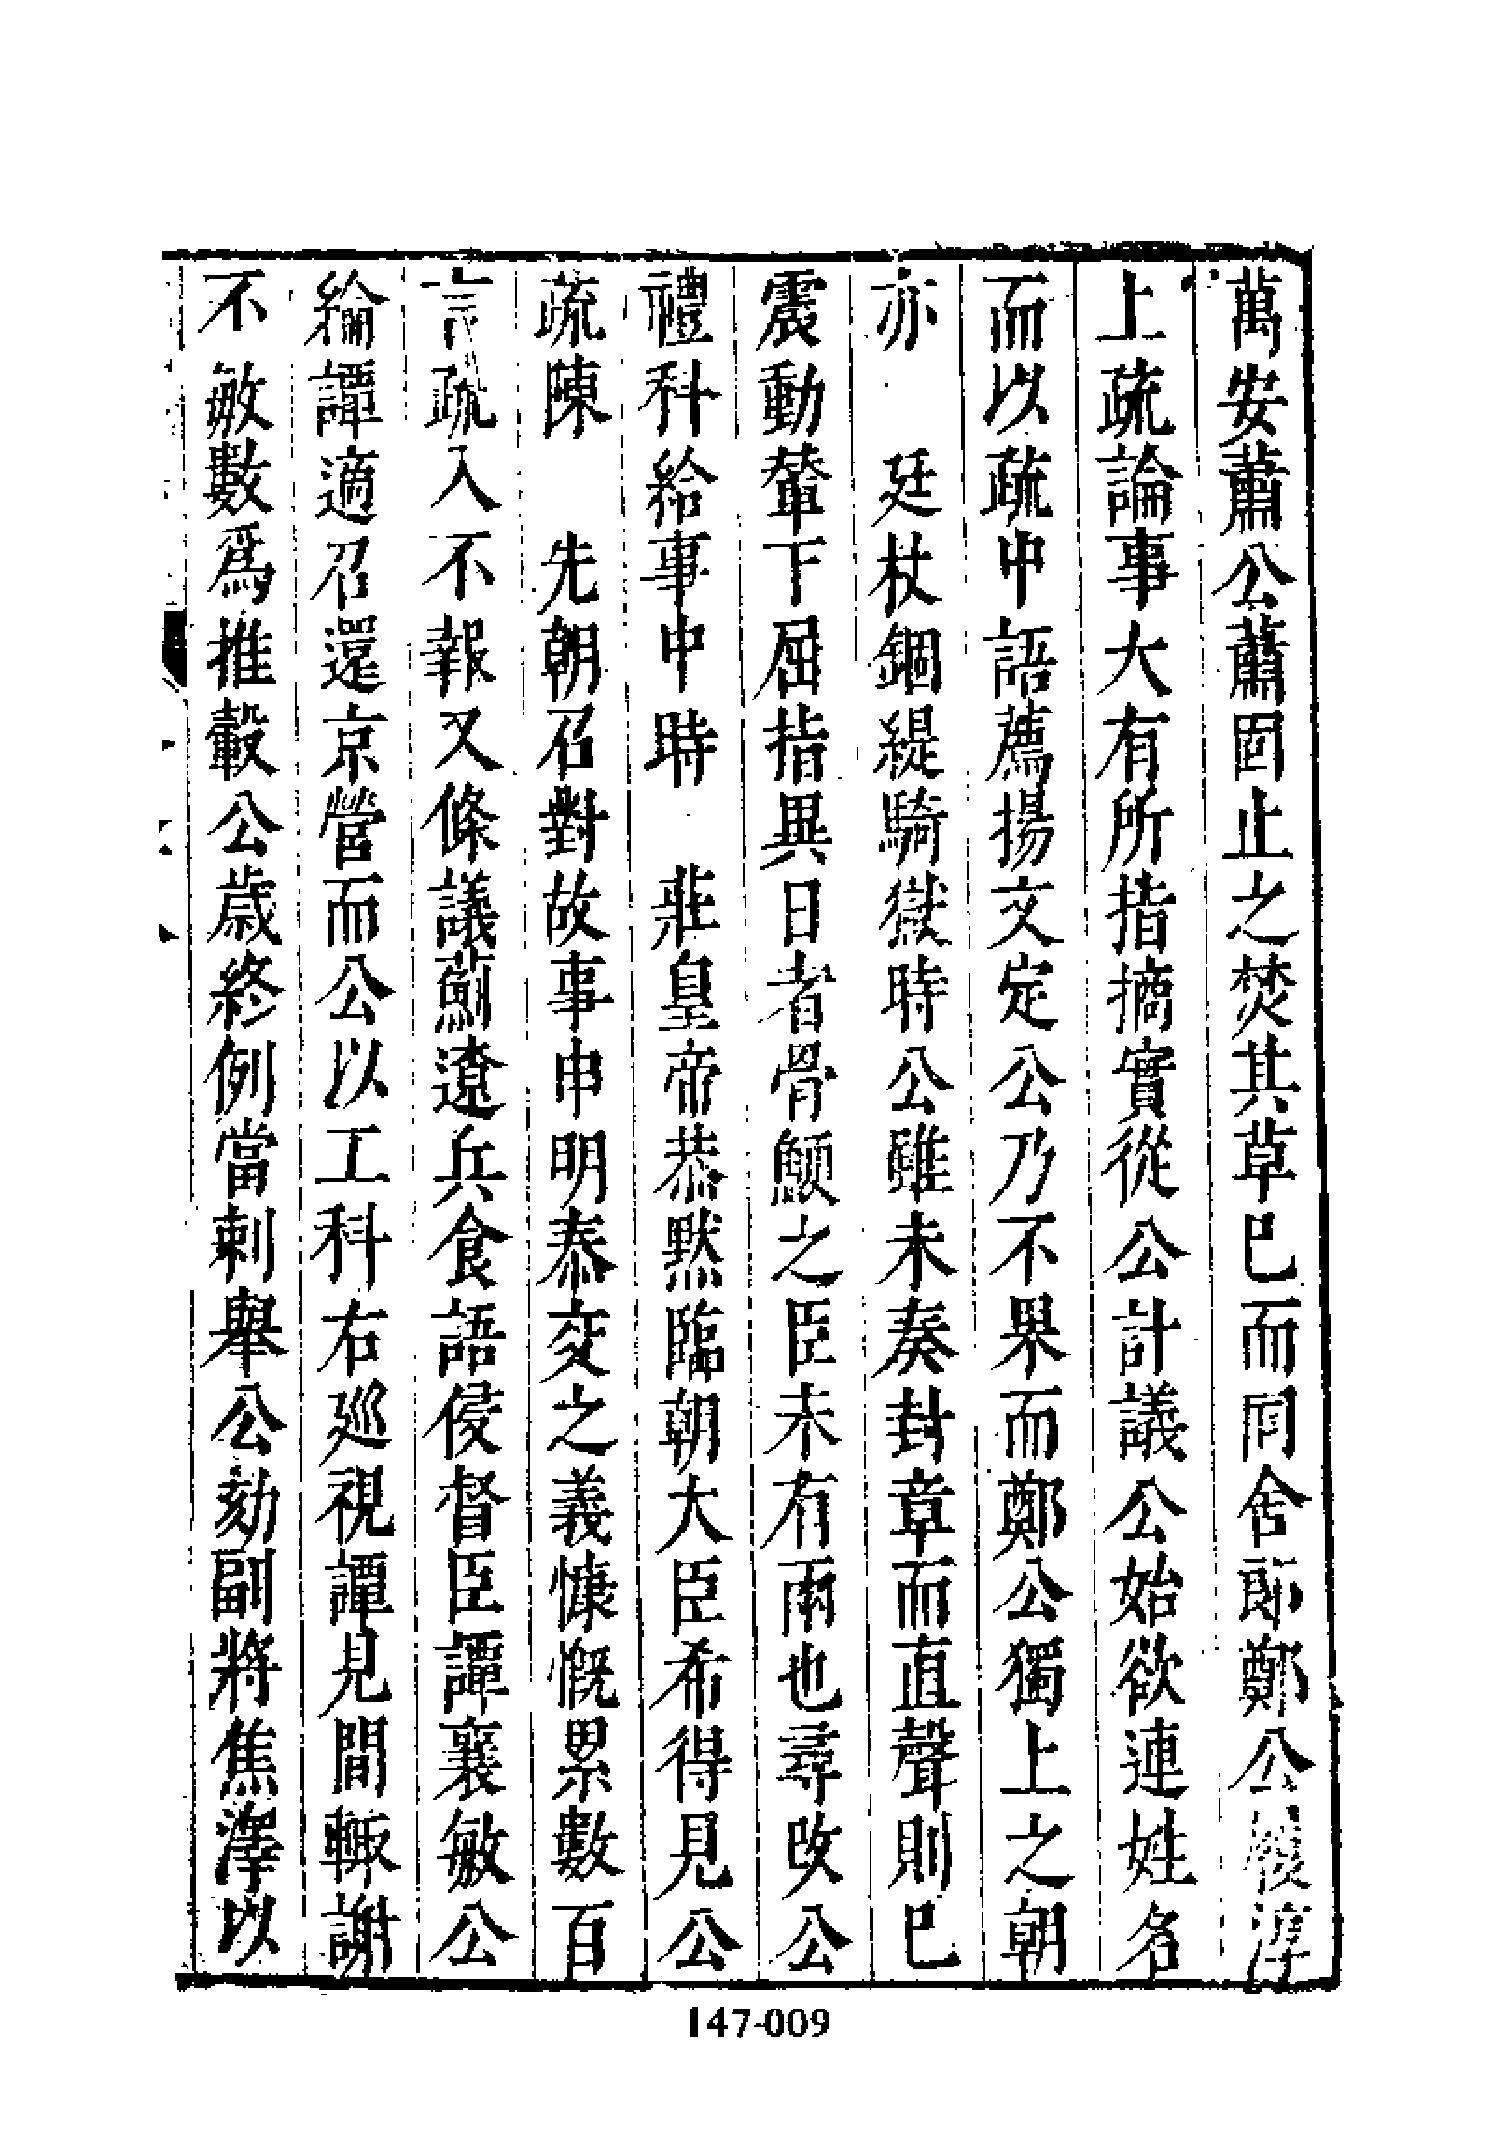 萬安蕭公蕭固止之焚其草巳而同舍郎鄭公履淳
上疏論事大有所指摘實從公計議公始欲連姓名
而以疏中語薦揚文定公乃不果而鄭公獨上之朝
亦 廷杖錮緹騎獄時公雖未奏封章而直聲則巳
震動輦下屈指異日者骨鯁之臣未有兩也尋改公
禮科給事中時 莊皇帝恭默臨朝大臣希得見公
疏陳 先朝召對故事申明泰交之義慷慨累數百
言疏入不報又條議薊遼兵食語侵督臣譚襄敏公
綸譚適召還京營而公以工科右廵視譚見間輙謝
不敏數為推轂公歲終例當刺舉公劾副將焦澤以
147-009